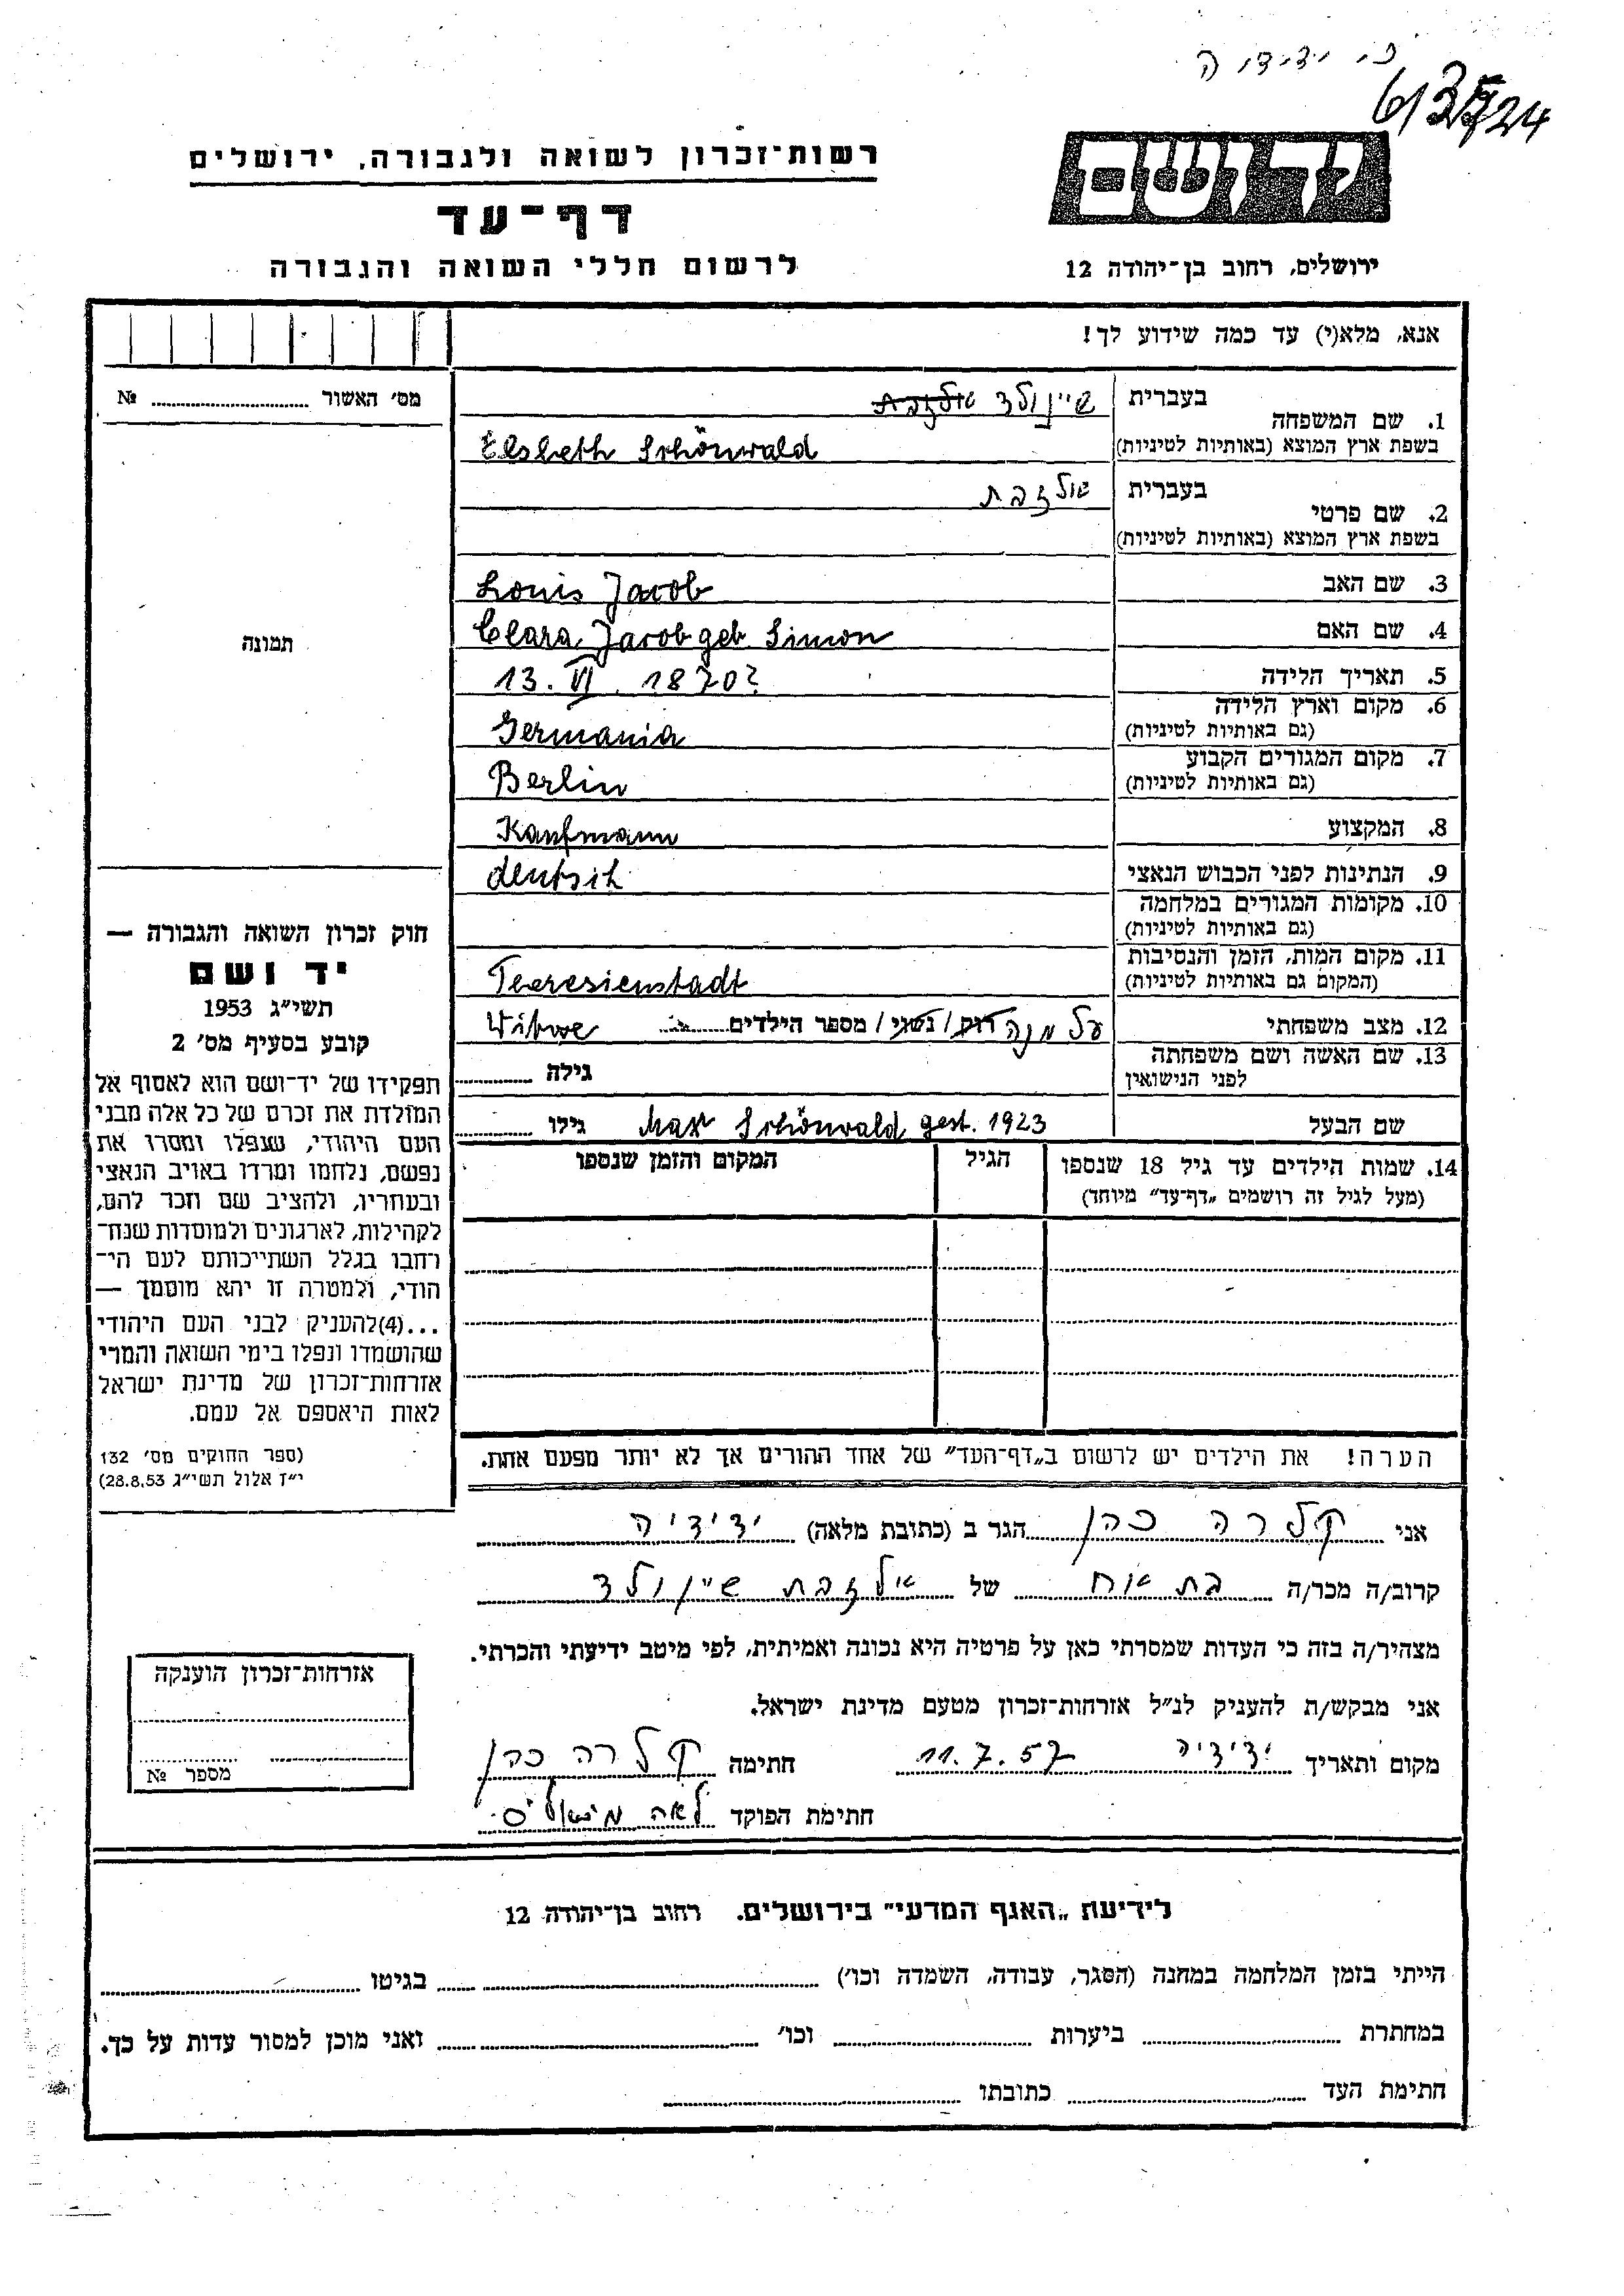 כ. ידידיה
רשות־זכרון לשואה ולגבורה, ירושלים
יד ושם
דף־עד
לרשום חללי השואה והגבורה
ירושלים, רחוב בן־יהודה 12
אנא, מלא(י) עד כמה שידוע לך!
מס׳ האשור № ....................
1. שם המשפחה
בעברית שיינולד אלזבת
בשפת ארץ המוצא (באותיות לטיניות) Elsbeth Schönwald
2. שם פרטי
בעברית אלזבת
בשפת ארץ המוצא (באותיות לטיניות)
3. שם האב Louis Jacob
4. שם האם Clara Jacob geb. Simon
תמונה
5. תאריך הלידה 13. VI. 1870?
6. מקום וארץ הלידה
(גם באותיות לטיניות) Germania
7. מקום המגורים הקבוע
(גם באותיות לטיניות) Berlin
8. המקצוע Kaufmann
9. הנתינות לפני הכבוש הנאצי deutsch
10. מקומות המגורים במלחמה
(גם באותיות לטיניות)
11. מקום המות, הזמן והנסיבות
(המקום גם באותיות לטיניות) Theresienstadt
12. מצב משפחתי אלמנה רוק/נשוי/ מספר הילדים........ Witwe
13. שם האשה ושם משפחתה
לפני הנישואין גילה ..........
שם הבעל Max Schönwald gest. 1923 גילו ..........
14. שמות הילדים עד גיל 18 שנספו
(מעל לגיל זה רושמים „דף־עד״ מיוחד)
הגיל
המקום והזמן שנספו
הערה! את הילדים יש לרשום ב„דף־העד״ של אחד ההורים אך לא יותר מפעם אחת.
חוק זכרון השואה והגבורה —
יד ושם
תשי״ג 1953
קובע בסעיף מס׳ 2
תפקידו של יד־ושם הוא לאסוף אל
המולדת את זכרם של כל אלה מבני
העם היהודי, שנפלו ומסרו את
נפשם, נלחמו ומרדו באויב הנאצי
ובעוזריו, ולהציב שם וזכר להם,
לקהילות, לארגונים ולמוסדות שנח־
רחבו בגלל השתייכותם לעם הי־
הודי, ולמטרה זו יהא מוסמך —
...(4)להעניק לבני העם היהודי
שהושמדו ונפלו בימי השואה והמרי
אזרחות־זכרון של מדינת ישראל
לאות היאספם אל עמם.
(ספר החוקים מס׳ 132
י״ז אלול תשי״ג 28.8.53)
אני קלרה כהן הגר ב (כתובת מלאה) ידידיה
קרוב/ה מכר/ה בת אח של אלזבת שיינולד
מצהיר/ה בזה כי העדות שמסרתי כאן על פרטיה היא נכונה ואמיתית, לפי מיטב ידיעתי והכרתי.
אני מבקש/ת להעניק לנ״ל אזרחות־זכרון מטעם מדינת ישראל.
מקום ותאריך ידידיה 11.7.57 חתימה קלרה כהן
חתימת הפוקד לאה
אזרחות־זכרון הוענקה
מספר №
לידיעת „האגף המדעי״ בירושלים. רחוב בן־יהודה 12
הייתי בזמן המלחמה במחנה (הסגר, עבודה, השמדה וכו׳) .................... בגיטו ....................
במחתרת .................... ביערות .................... וכו׳ .................... ואני מוכן למסור עדות על כך.
חתימת העד .................... כתובתו ....................